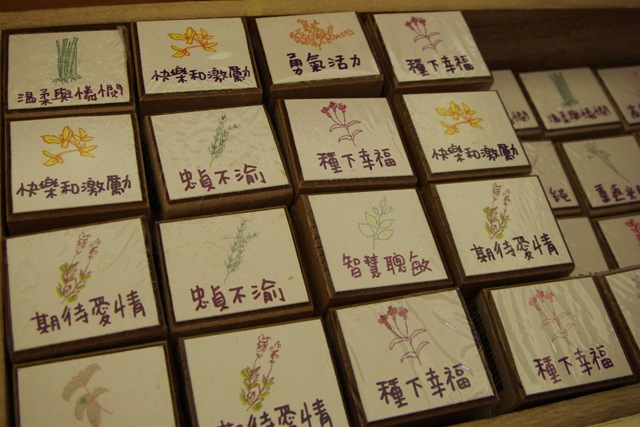 溫柔與憐憫
快樂和激勵
勇氣活力
種下幸福
快樂和激勵
忠貞不渝
種下幸福
快樂和激勵
溫柔與憐憫
期待愛情
忠貞不渝
智慧聰敏
期待愛情
純
期待愛情
種下幸福
種下幸福